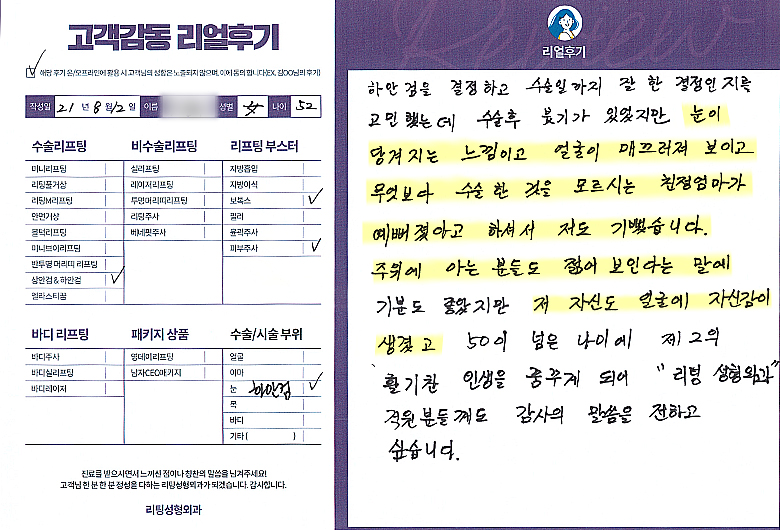 고객감동 리얼후기
해당 후기 온/오프라인에 활용 시 고객님의 성함은 노출되지 않으며, 이에 동의 합니다(EX. 김OO님의 후기)
작성일 21년 8월 12일 이름 성별 女 나이 52
수술리프팅
미니리프팅
리팅풀거상
리팅M리프팅
안면거상
울덕리프팅
미니브이리프팅
반투명 머리띠 리프팅
상안검 & 하안검
엘라스티꿈
비수술리프팅
실리프팅
레이저리프팅
투명머리띠리프팅
리팅주사
베네핏주사
리프팅 부스터
지방흡입
지방이식
보톡스
필러
윤곽주사
피부주사
바디 리프팅
바디주사
바디실리프팅
바디레이저
패키지 상품
원데이리프팅
남자CEO패키지
수술/시술 부위
얼굴
이마
눈 하안검
목
바디
기타 ( )
진료를 받으시면서 느끼신 점이나 칭찬의 말씀을 남겨주세요!
고객님 한 분 한 분 정성을 다하는 리팅성형외과가 되겠습니다. 감사합니다.
리팅성형외과
Review
리얼후기
하안검을 결정하고 수술일까지 잘 한 결정인지를
고민했는데 수술후 붓기가 있었지만 눈이
당겨지는 느낌이고 얼굴이 매끄러져 보이고
무엇보다 수술 한 것을 모르시는 친정엄마가
예뻐졌다고 하셔서 저도 기뻤습니다.
주위에 아는 분들도 젊어 보인다는 말에
기분도 좋았지만 저 자신도 얼굴에 자신감이
생겼고 50이 넘은 나이에 제2의
활기찬 인생을 꿈꾸게 되어 "리팅 성형외과"
직원분들께도 감사의 말씀을 전하고
싶습니다.